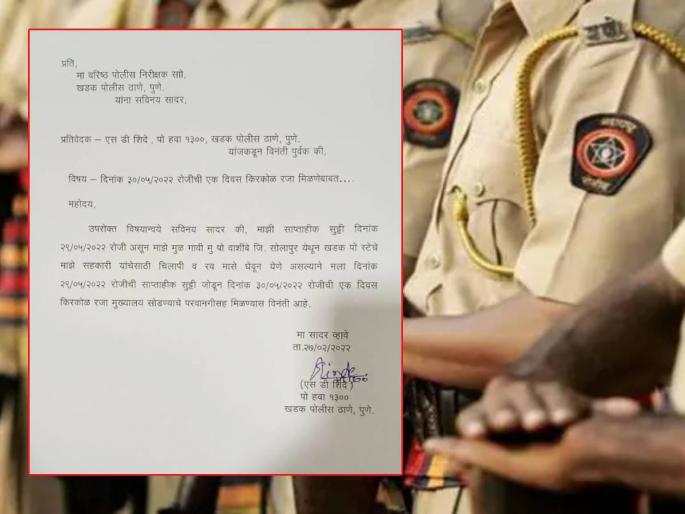 प्रति,
मा वरिष्ठ पोलीस निरीक्षक साो,
खडक पोलीस ठाणे, पुणे.
यांना सविनय सादर,
प्रतिवेदक – एस डी शिंदे , पो हवा १३००, खडक पोलीस ठाणे, पुणे.
यांजकडून विनंती पुर्वक की,
विषय – दिनांक ३०/०५/२०२२ रोजीची एक दिवस किरकोळ रजा मिळणेबाबत....
महोदय,
उपरोक्त विषयान्वये सविनय सादर की, माझी साप्ताहीक सुट्टी दिनांक
२९/०५/२०२२ रोजी असून माझे मुळ गावी मु पो वाशींबे जि. सोलापुर येथून खडक पो स्टेचे
माझे सहकारी यांचेसाठी चिलापी व रव मासे घेवून येणे असल्याने मला दिनांक
२९/०५/२०२२ रोजीची साप्ताहीक सुट्टी जोडून दिनांक ३०/०५/२०२२ रोजीची एक दिवस
किरकोळ रजा मुख्यालय सोडण्याचे परवानगीसह मिळण्यास विनंती आहे.
मा सादर व्हावे
ता.२७/०२/२०२२
(एस डी शिंदे )
पो हवा १३००
खडक पोलीस ठाणे, पुणे.